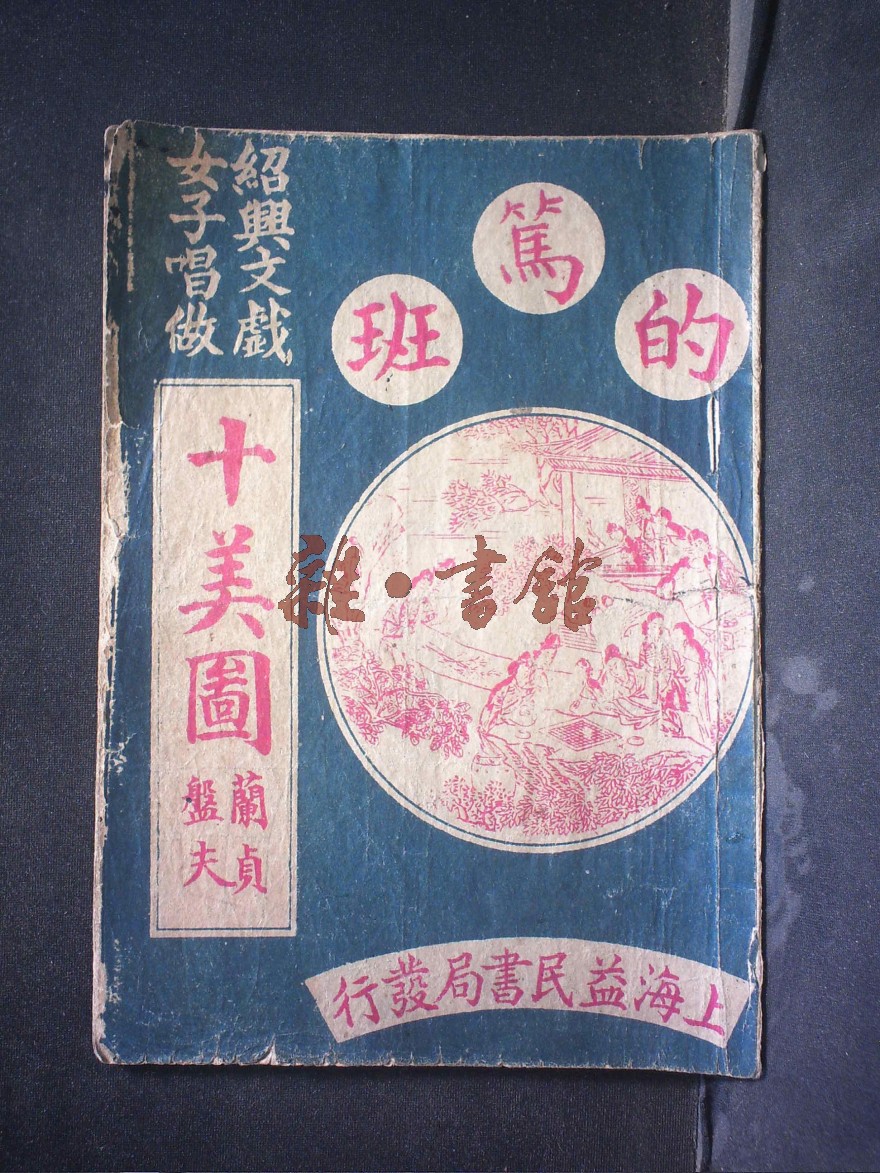 的篤班
紹興文戲
女子唱做
十美圖
蘭貞
盤夫
上海益民書局發行
雜·書館